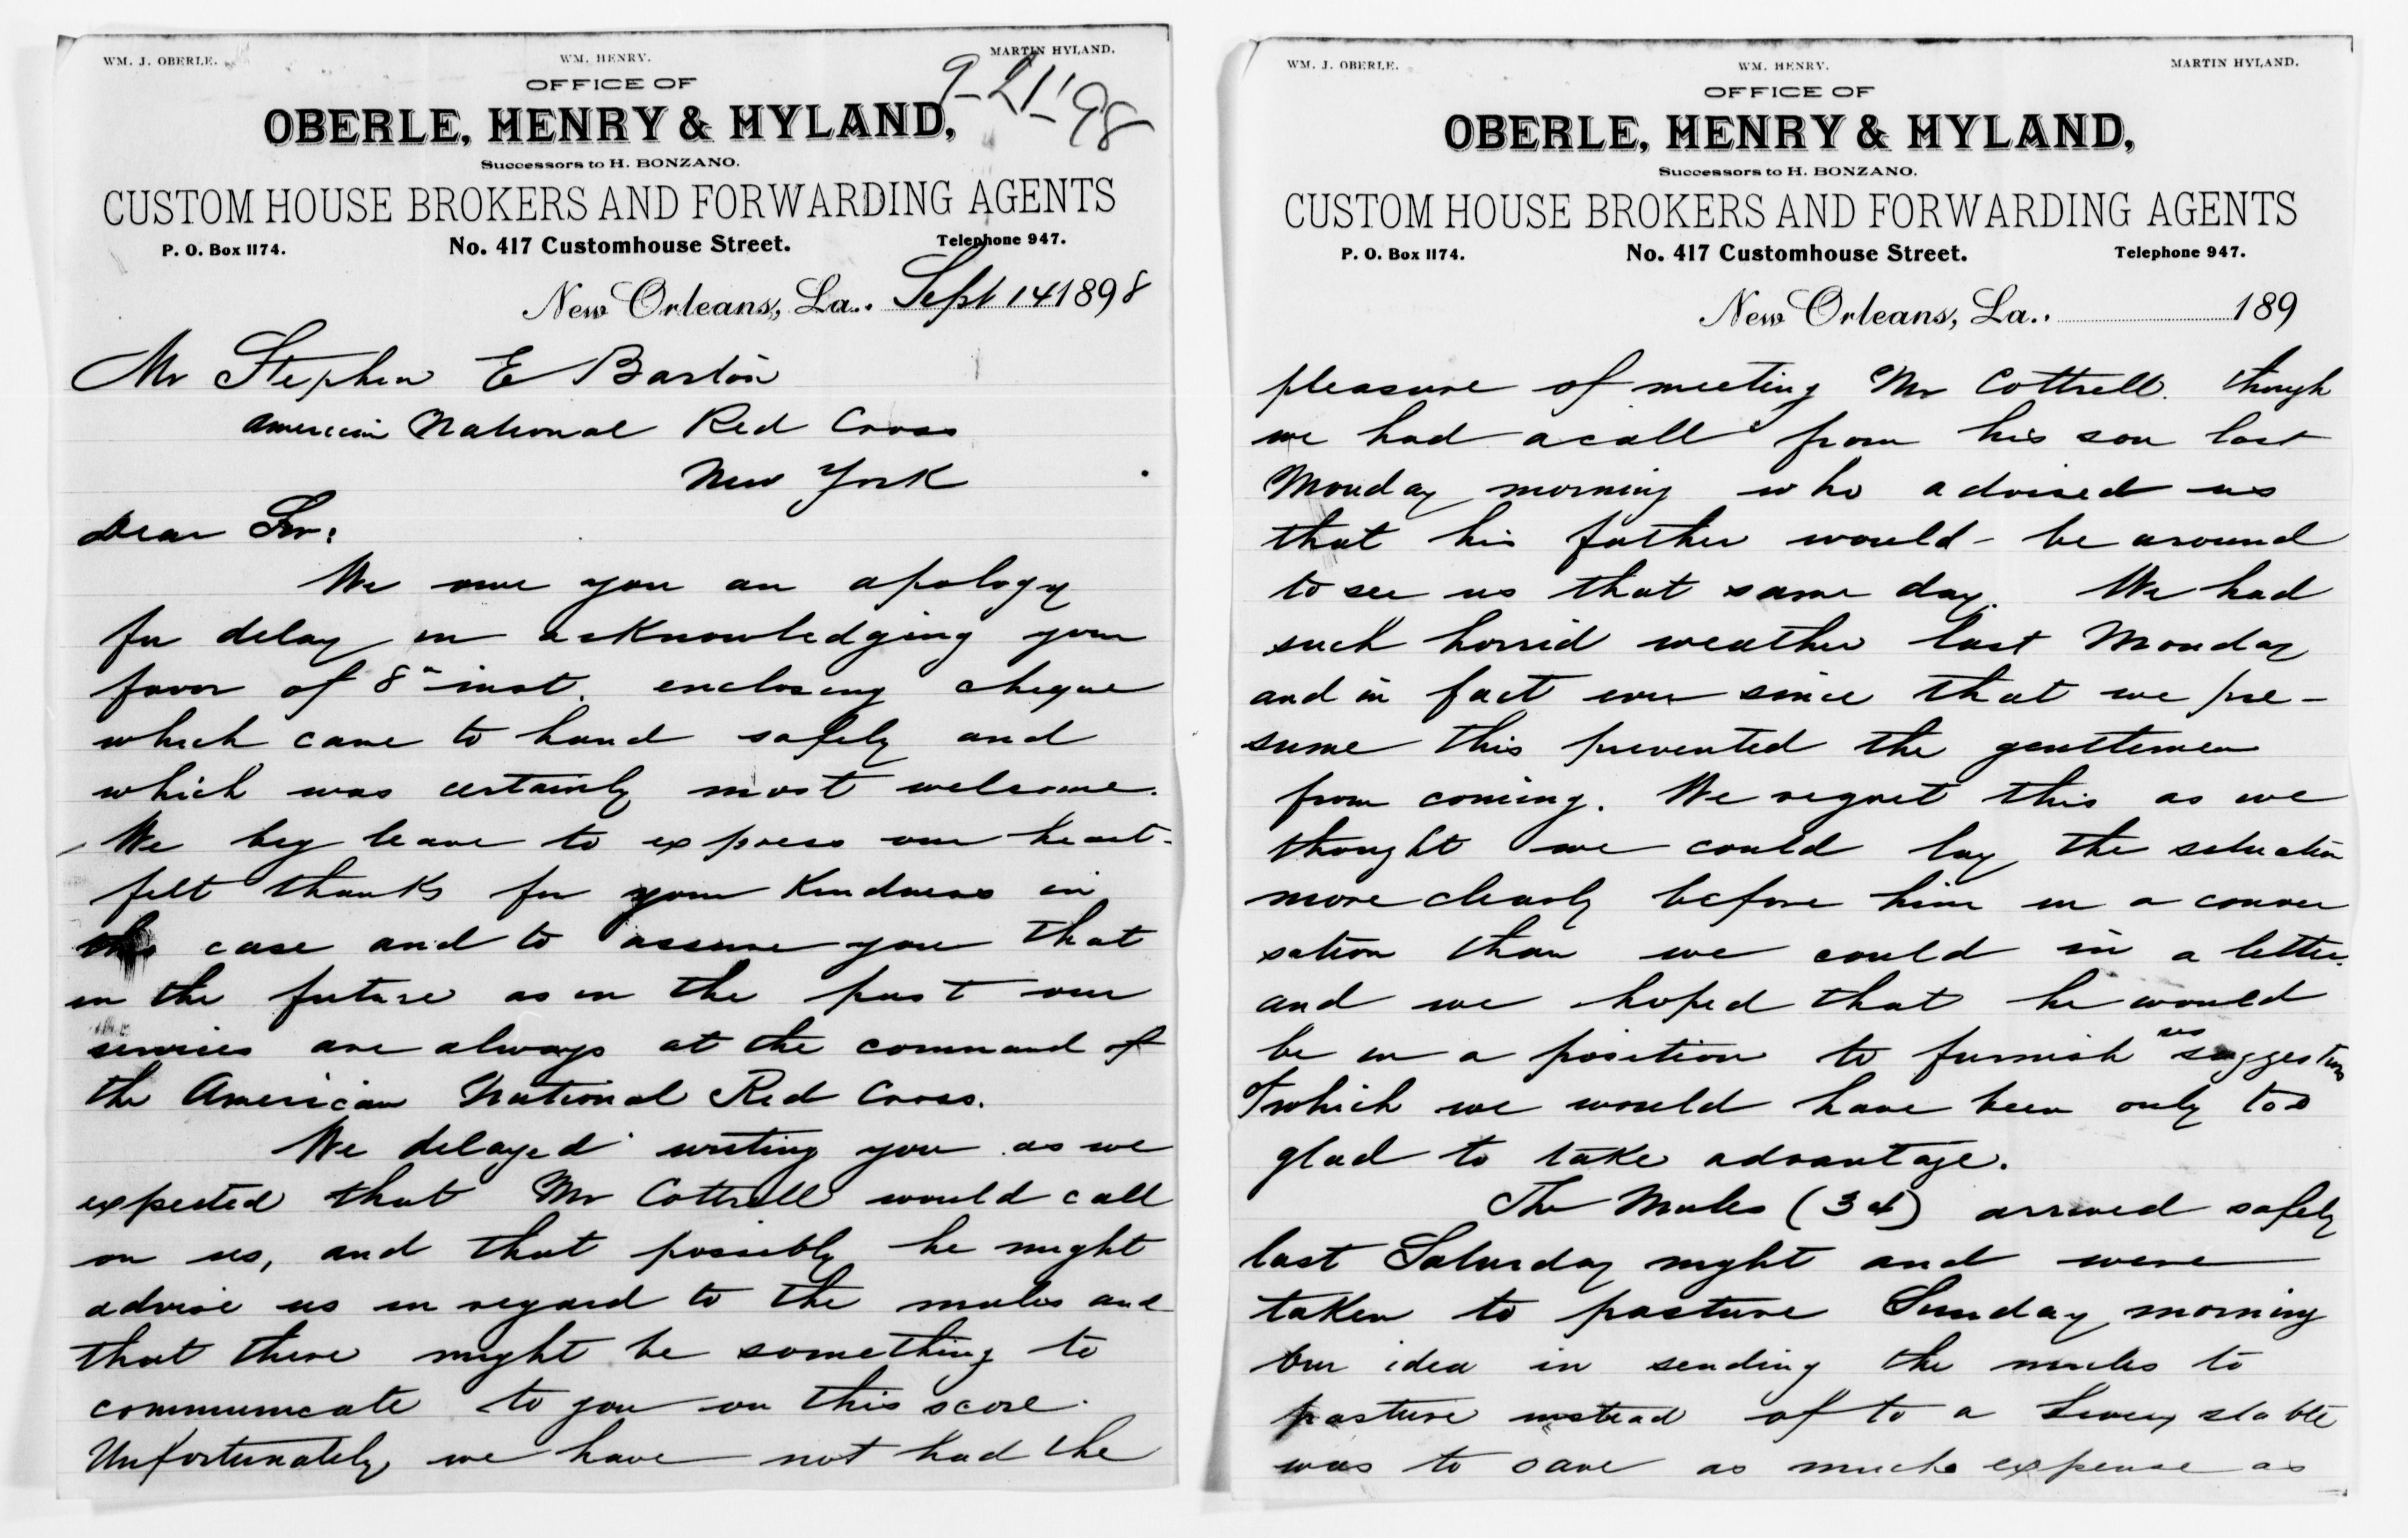 WM. J. OBERLE. WM. HENRY. MARTIN HYLAND.
9-21-'98
OFFICE OF
OBERLE, HENRY & HYLAND,
Successors to H. BONZANO.
CUSTOM HOUSE BROKERS AND FORWARDING AGENTS
P. O. Box 1174. No. 417 Customhouse Street. Telephone 947.
New Orleans, La.. Sept 14 1898
Mr Stephen E Barton
American National Red Cross
New York
Dear Sir:
We owe you an apology
for delay in acknowledging your
favor of 8" inst. enclosing cheque
which came to hand safely and
which was certainly most welcome.
We beg leave to express our heart-
felt thanks for your kindness in
this case and to assure you that
in the future as in the past our
services are always at the command of
the American National Red Cross.
We delayed writing you as we
expected that Mr Cottrell would call
on us, and that possibly he might
advise us in regard to the mules and
that there might be something to
communicate to you on this score.
Unfortunately we have not had the
WM. J. OBERLE. WM. HENRY. MARTIN HYLAND.
OFFICE OF
OBERLE, HENRY & HYLAND,
Successors to H. BONZANO.
CUSTOM HOUSE BROKERS AND FORWARDING AGENTS
P. O. Box 1174. No. 417 Customhouse Street. Telephone 947.
New Orleans, La.. 189
pleasure of meeting Mr Cottrell. though
we had a call from his son last
Monday morning who advised us
that his father would - be around
to see us that same day. We had
such horrid weather last Monday
and in fact ever since that we pre-
sume this prevented the gentlemen
from coming. We regret this as we
thought we could lay the situation
more clearly before him in a conver
sation than we could in a letter.
and we hoped that he would
be in a position to furnish us suggestions
which we would have been only too
glad to take advantage.
The Mules (34) arrived safely
last Saturday night and were
taken to pasture Sunday morning
Our idea in sending the mules to
pasture instead of to a Livery stable
was to save as much expense as